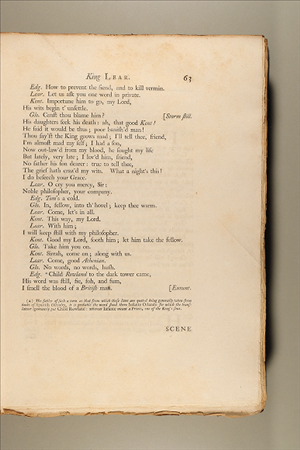 King LEAR. 63
Edg. How to prevent the fiend, and to kill vermin.
Lear. Let us ask you one word in private.
Kent. Importune him to go, my Lord,
His wits begin t' unsettle.
Glo. Canst thou blame him? [Storm still.
His daughters seek his death: ah, that good Kent!
He said it would be thus; poor banish'd man!
Thou say'st the King grows mad; I'll tell thee, friend,
I'm almost mad my self; I had a son,
Now out-law'd from my blood, he sought my life
But lately, very late; I lov'd him, friend,
No father his son dearer: true to tell thee,
The grief hath craz'd my wits. What a night's this!
I do beseech your Grace.
Lear. O cry you mercy, Sir:
Noble philosopher, your company.
Edg. Tom's a-cold.
Glo. In, fellow, into th' hovel; keep thee warm.
Lear. Come, let's in all.
Kent. This way, my Lord.
Lear. With him;
I will keep still with my philosopher.
Kent. Good my Lord, sooth him; let him take the fellow.
Glo. Take him you on.
Kent. Sirrah, come on; along with us.
Lear. Come, good Athenian.
Glo. No words, no words, hush.
Edg. Child Rowland to the dark tower came,
His word was still, fie, foh, and fum,
I smell the blood of a British man. [Exeunt.
SCENE